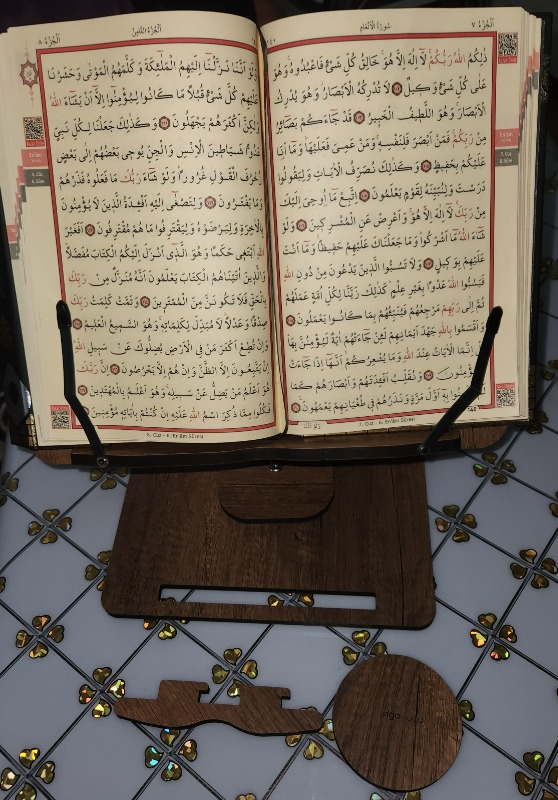 اَلْجُزْءُ ٧
سُورَةُ الْاَنْعَامِ
ذٰلِكُمُ اللّٰهُ رَبُّكُمْ لَٓا اِلٰهَ اِلَّا هُوَ خَالِقُ كُلِّ شَيْءٍ فَاعْبُدُوهُ وَهُوَ
عَلٰى كُلِّ شَيْءٍ وَكِيلٌ ﴿١٠٢﴾ لَا تُدْرِكُهُ الْاَبْصَارُ وَهُوَ يُدْرِكُ
الْاَبْصَارَ وَهُوَ اللَّطِيفُ الْخَبِيرُ ﴿١٠٣﴾ قَدْ جَٓاءَكُمْ بَصَٓائِرُ
مِنْ رَبِّكُمْ فَمَنْ اَبْصَرَ فَلِنَفْسِهِ وَمَنْ عَمِيَ فَعَلَيْهَا وَمَٓا اَنَا۬
عَلَيْكُمْ بِحَفِيظٍ ﴿١٠٤﴾ وَكَذٰلِكَ نُصَرِّفُ الْاٰيَاتِ وَلِيَقُولُوا
دَرَسْتَ وَلِنُبَيِّنَهُ لِقَوْمٍ يَعْلَمُونَ ﴿١٠٥﴾ اِتَّبِعْ مَٓا اُو۫حِيَ اِلَيْكَ
مِنْ رَبِّكَ لَٓا اِلٰهَ اِلَّا هُوَ وَاَعْرِضْ عَنِ الْمُشْرِكِينَ ﴿١٠٦﴾ وَلَوْ
شَٓاءَ اللّٰهُ مَٓا اَشْرَكُوا وَمَا جَعَلْنَاكَ عَلَيْهِمْ حَفِيظًا وَمَٓا اَنْتَ
عَلَيْهِمْ بِوَكِيلٍ ﴿١٠٧﴾ وَلَا تَسُبُّوا الَّذِينَ يَدْعُونَ مِنْ دُونِ اللّٰهِ
فَيَسُبُّوا اللّٰهَ عَدْوًا بِغَيْرِ عِلْمٍ كَذٰلِكَ زَيَّنَّا لِكُلِّ اُمَّةٍ عَمَلَهُمْ
ثُمَّ اِلٰى رَبِّهِمْ مَرْجِعُهُمْ فَيُنَبِّئُهُمْ بِمَا كَانُوا يَعْمَلُونَ ﴿١٠٨﴾
وَاَقْسَمُوا بِاللّٰهِ جَهْدَ اَيْمَانِهِمْ لَئِنْ جَٓاءَتْهُمْ اٰيَةٌ لَيُؤْمِنُنَّ بِهَا
قُلْ اِنَّمَا الْاٰيَاتُ عِنْدَ اللّٰهِ وَمَا يُشْعِرُكُمْ اَنَّهَٓا اِذَا جَٓاءَتْ
لَا يُؤْمِنُونَ ﴿١٠٩﴾ وَنُقَلِّبُ اَفْـِٔدَتَهُمْ وَاَبْصَارَهُمْ كَمَا
لَمْ يُؤْمِنُوا بِهِ اَوَّلَ مَرَّةٍ وَنَذَرُهُمْ فِي طُغْيَانِهِمْ يَعْمَهُونَ ﴿١١٠﴾
وَلَوْ اَنَّنَا
7. Cüz - 6. En'âm Sûresi
اَلْجُزْءُ الثَّامِنُ
اَلْجُزْءُ ٨
وَلَوْ اَنَّنَا نَزَّلْنَٓا اِلَيْهِمُ الْمَلٰٓئِكَةَ وَكَلَّمَهُمُ الْمَوْتٰى وَحَشَرْنَا
عَلَيْهِمْ كُلَّ شَيْءٍ قُبُلًا مَا كَانُوا لِيُؤْمِنُٓوا اِلَّٓا اَنْ يَشَٓاءَ اللّٰهُ
وَلٰكِنَّ اَكْثَرَهُمْ يَجْهَلُونَ ﴿١١١﴾ وَكَذٰلِكَ جَعَلْنَا لِكُلِّ نَبِيٍّ
عَدُوًّا شَيَاطِينَ الْاِنْسِ وَالْجِنِّ يُوحِي بَعْضُهُمْ اِلٰى بَعْضٍ
زُخْرُفَ الْقَوْلِ غُرُورًا وَلَوْ شَٓاءَ رَبُّكَ مَا فَعَلُوهُ فَذَرْهُمْ
وَمَا يَفْتَرُونَ ﴿١١٢﴾ وَلِتَصْغٰٓى اِلَيْهِ اَفْـِٔدَةُ الَّذِينَ لَا يُؤْمِنُونَ
بِالْاٰخِرَةِ وَلِيَرْضَوْهُ وَلِيَقْتَرِفُوا مَا هُمْ مُقْتَرِفُونَ ﴿١١٣﴾ اَفَغَيْرَ
اللّٰهِ اَبْتَغِي حَكَمًا وَهُوَ الَّذِٓي اَنْزَلَ اِلَيْكُمُ الْكِتَابَ مُفَصَّلًا
وَالَّذِينَ اٰتَيْنَاهُمُ الْكِتَابَ يَعْلَمُونَ اَنَّهُ مُنَزَّلٌ مِنْ رَبِّكَ
بِالْحَقِّ فَلَا تَكُونَنَّ مِنَ الْمُمْتَرِينَ ﴿١١٤﴾ وَتَمَّتْ كَلِمَتُ رَبِّكَ
صِدْقًا وَعَدْلًا لَا مُبَدِّلَ لِكَلِمَاتِهِ وَهُوَ السَّمِيعُ الْعَلِيمُ ﴿١١٥﴾
وَاِنْ تُطِعْ اَكْثَرَ مَنْ فِي الْاَرْضِ يُضِلُّوكَ عَنْ سَبِيلِ اللّٰهِ
اِنْ يَتَّبِعُونَ اِلَّا الظَّنَّ وَاِنْ هُمْ اِلَّا يَخْرُصُونَ ﴿١١٦﴾ اِنَّ رَبَّكَ
هُوَ اَعْلَمُ مَنْ يَضِلُّ عَنْ سَبِيلِهِ وَهُوَ اَعْلَمُ بِالْمُهْتَدِينَ ﴿١١٧﴾
فَكُلُوا مِمَّا ذُكِرَ اسْمُ اللّٰهِ عَلَيْهِ اِنْ كُنْتُمْ بِاٰيَاتِهِ مُؤْمِنِينَ ﴿١١٨﴾
8. Cüz - 6. En'âm Sûresi